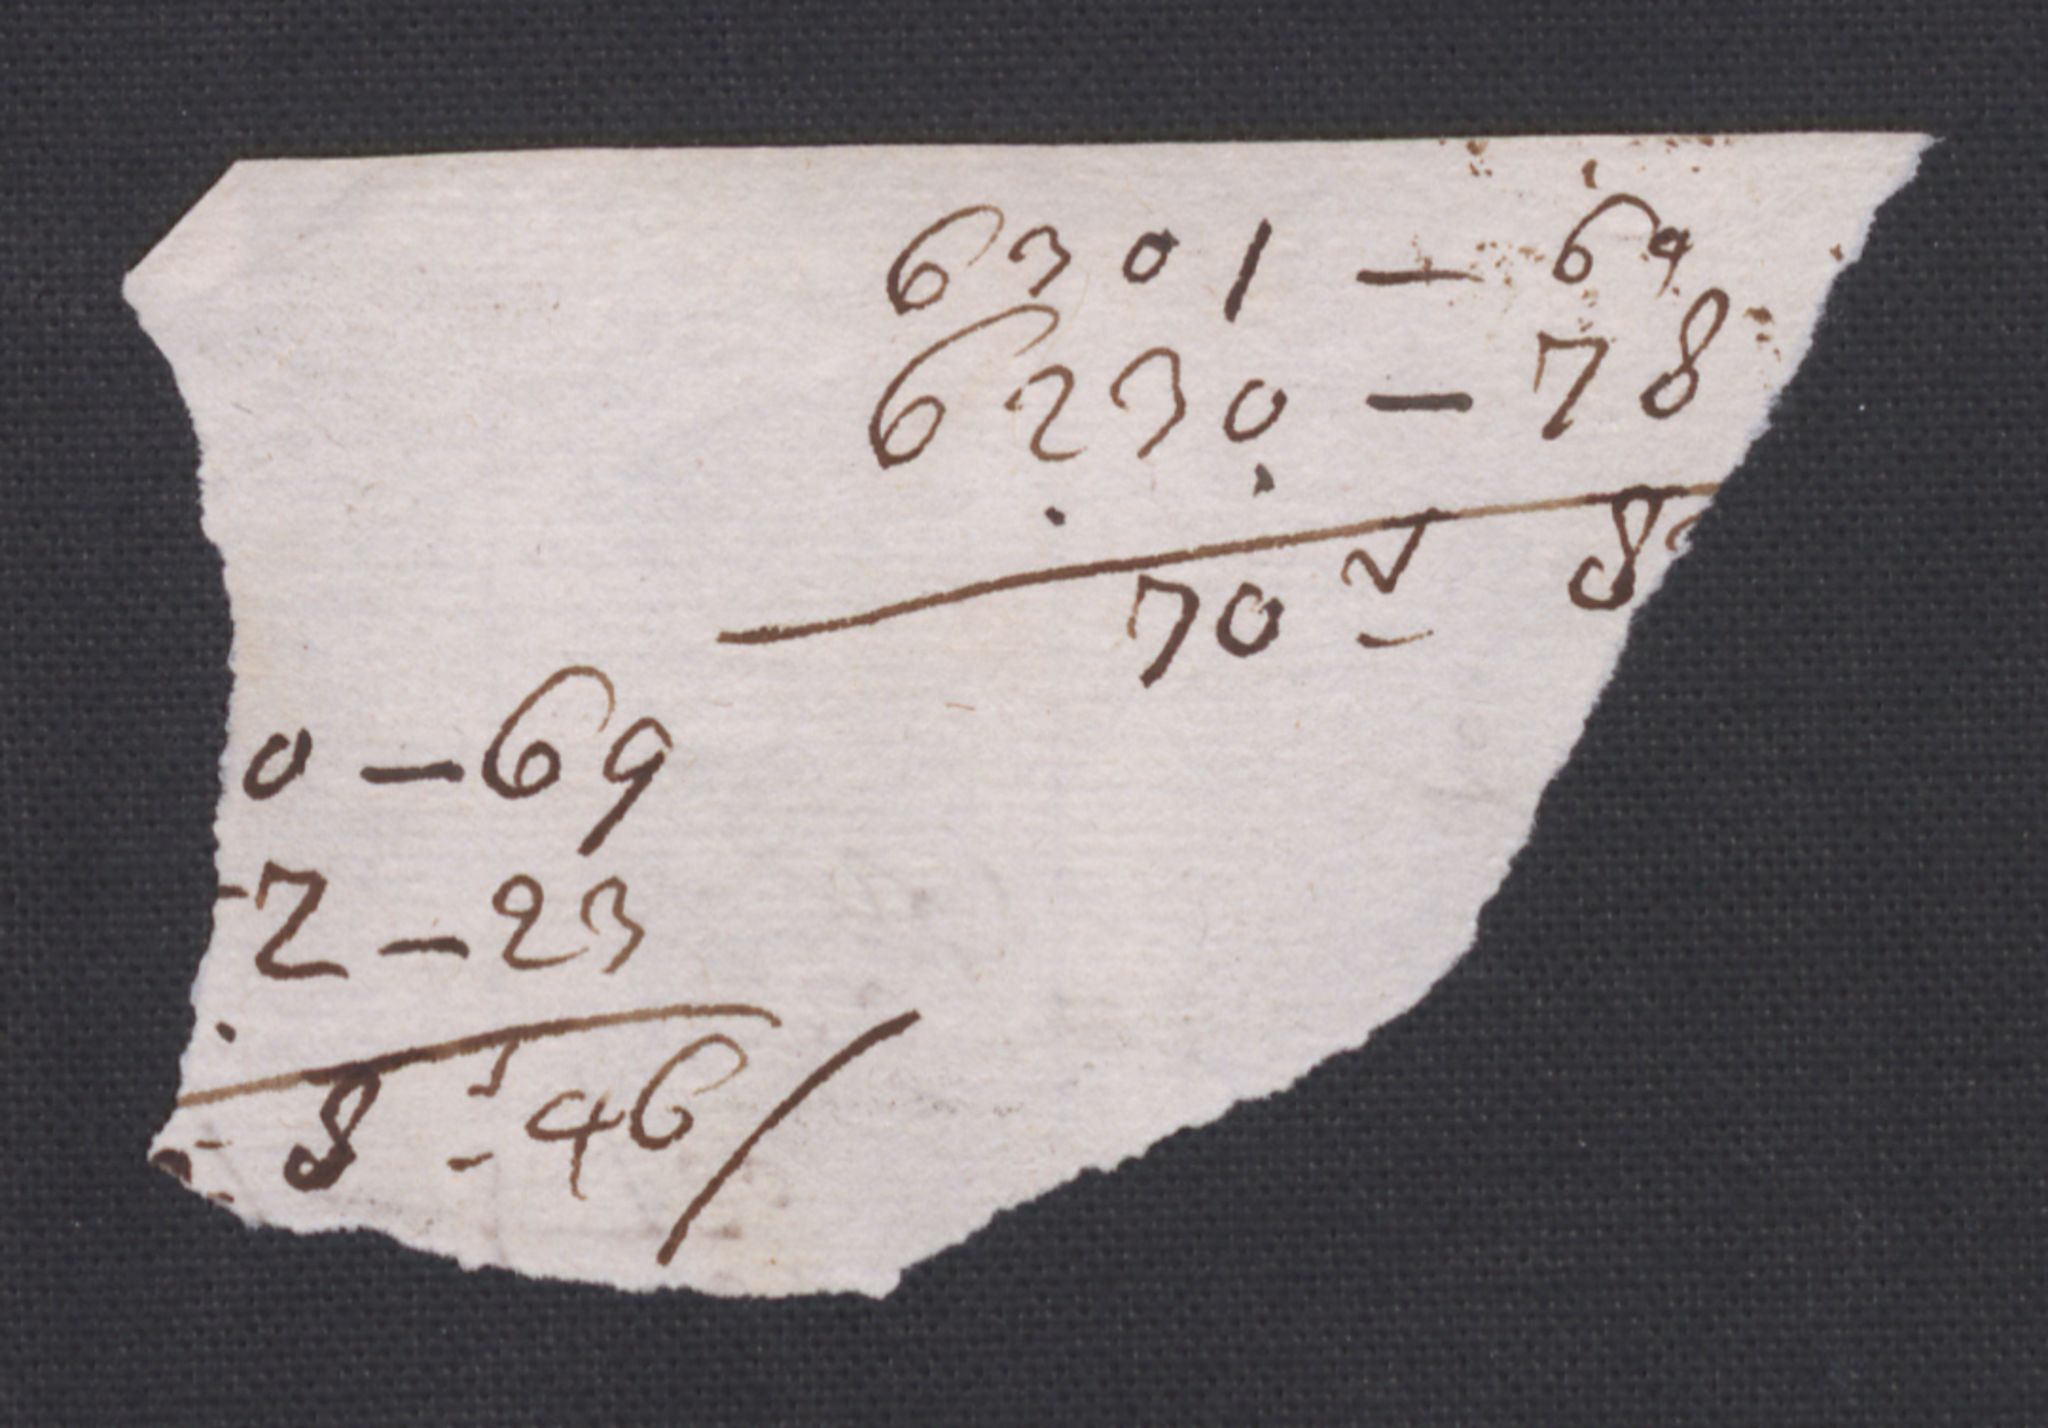 6301 — 69
6230 — 78
70 8
0 — 69
2 — 23
8 - 46/